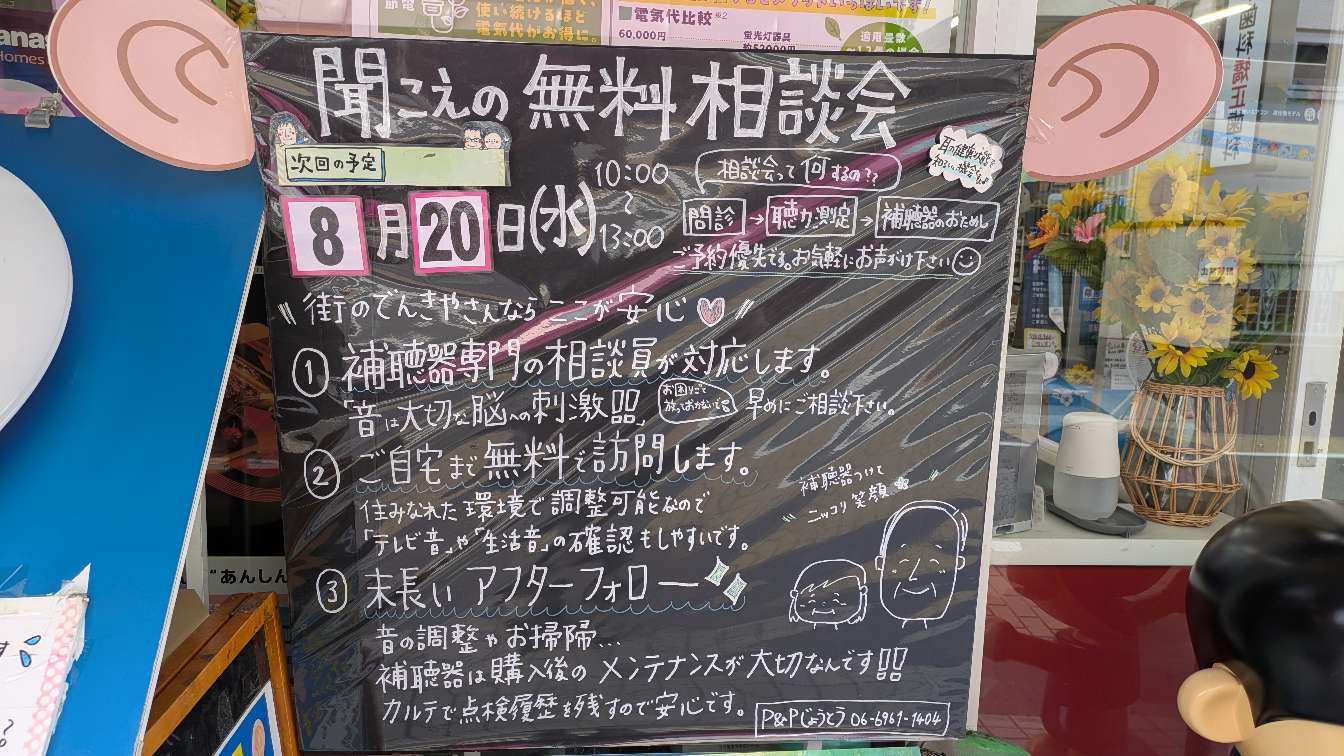 節電
使い続けるほど
電気代がお得に。
電気代比較※2
60,000円
蛍光灯器具
約52000円
適用畳数
Homes
聞こえの無料相談会
次回の予定
8月20日(水)
10:00
~
13:00
相談会って何するの??
問診→聴力測定→補聴器のおためし
ご予約優先です。お気軽にお声がけ下さい
街のでんきやさんならここが安心
① 補聴器専門の相談員が対応します。
「音は大切な脳への刺激」
お困りごと
放っておかないで
早めにご相談下さい。
② ご自宅まで無料で訪問します。
住みなれた環境で調整可能なので
「テレビ音」や「生活音」の確認もしやすいです。
補聴器つけて
ニッコリ笑顔
③ 末長いアフターフォロー
音の調整やお掃除...
補聴器は購入後のメンテナンスが大切なんです!!
カルテで点検履歴を残すので安心です。
P&Pじょうとう 06-6961-1404
"あんしん
歯科矯正歯科